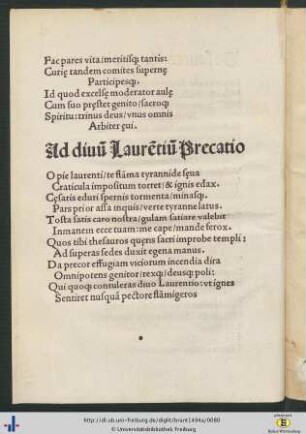 Fac pares vita/meritisqꝫ tantis:
Curię tandem comites supernę
Participesqꝫ.
Id quod excelsę moderator aulę
Cum suo pręstet genito/sacroqꝫ
Spiritu: trinus deus/vnus omnis
Arbiter ęui.
Ad diuū Laurētiū Precatio
O pie laurenti/te flāma tyrannide sęua
Craticula impositum torret/& ignis edax.
Cęsaris eduri spernis tormenta/minasqꝫ.
Pars prior assa inquis/verte tyranne latus.
Tosta satis caro nostra/gulam satiare valebit
Inmanem ecce tuam: me cape/mande ferox.
Quos tibi thesauros quęris sacri improbe templi:
Ad superas sedes duxit egena manus.
Da precor effugiam viciorum incendia dira
Omnipotens genitor/rexqꝫ/deusqꝫ poli:
Qui quoqꝫ contuleras diuo Laurentio: vt ignes
Sentiret nusquā pectore flāmigeros
http://dl.ub.uni-freiburg.de/diglit/brant1494a/0080
© Universitätsbibliothek Freiburg